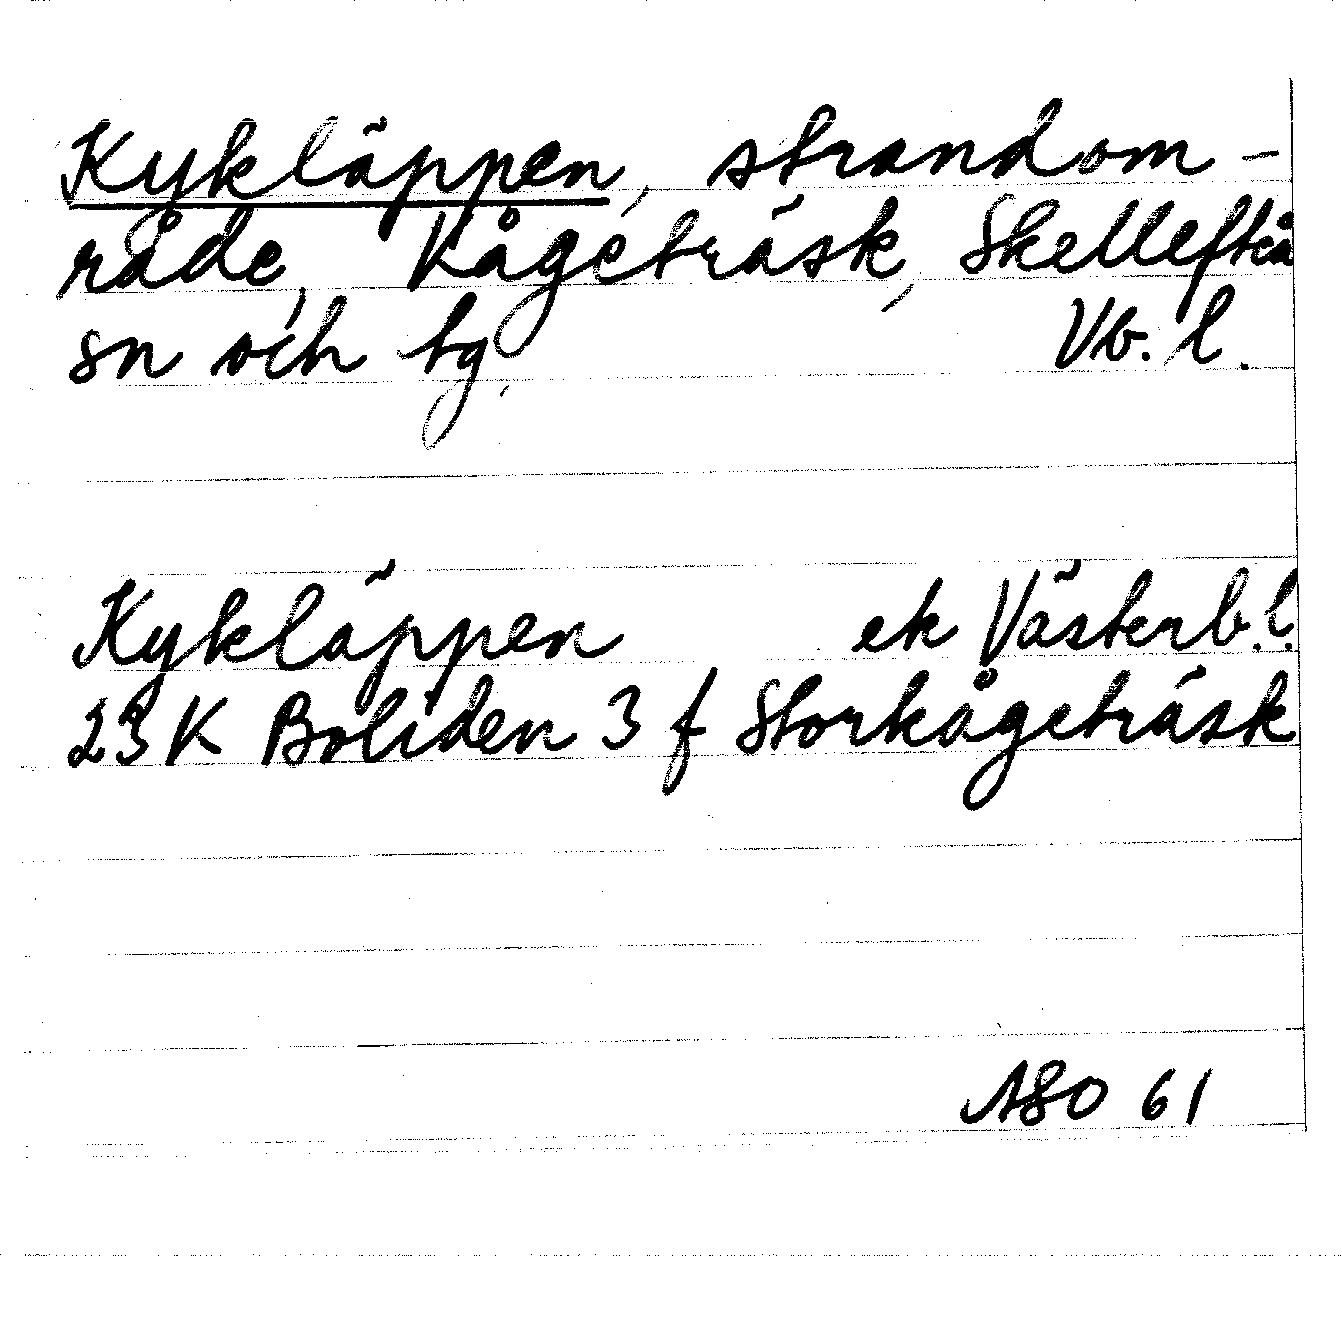 Kykläppen, strandom-
råde, Kågeträsk, Skellefteå
sn och tg, Vb. l.
Kykläppen ek Västerb. l.
23 K Boliden 3 f Storkågeträsk
ASO 61